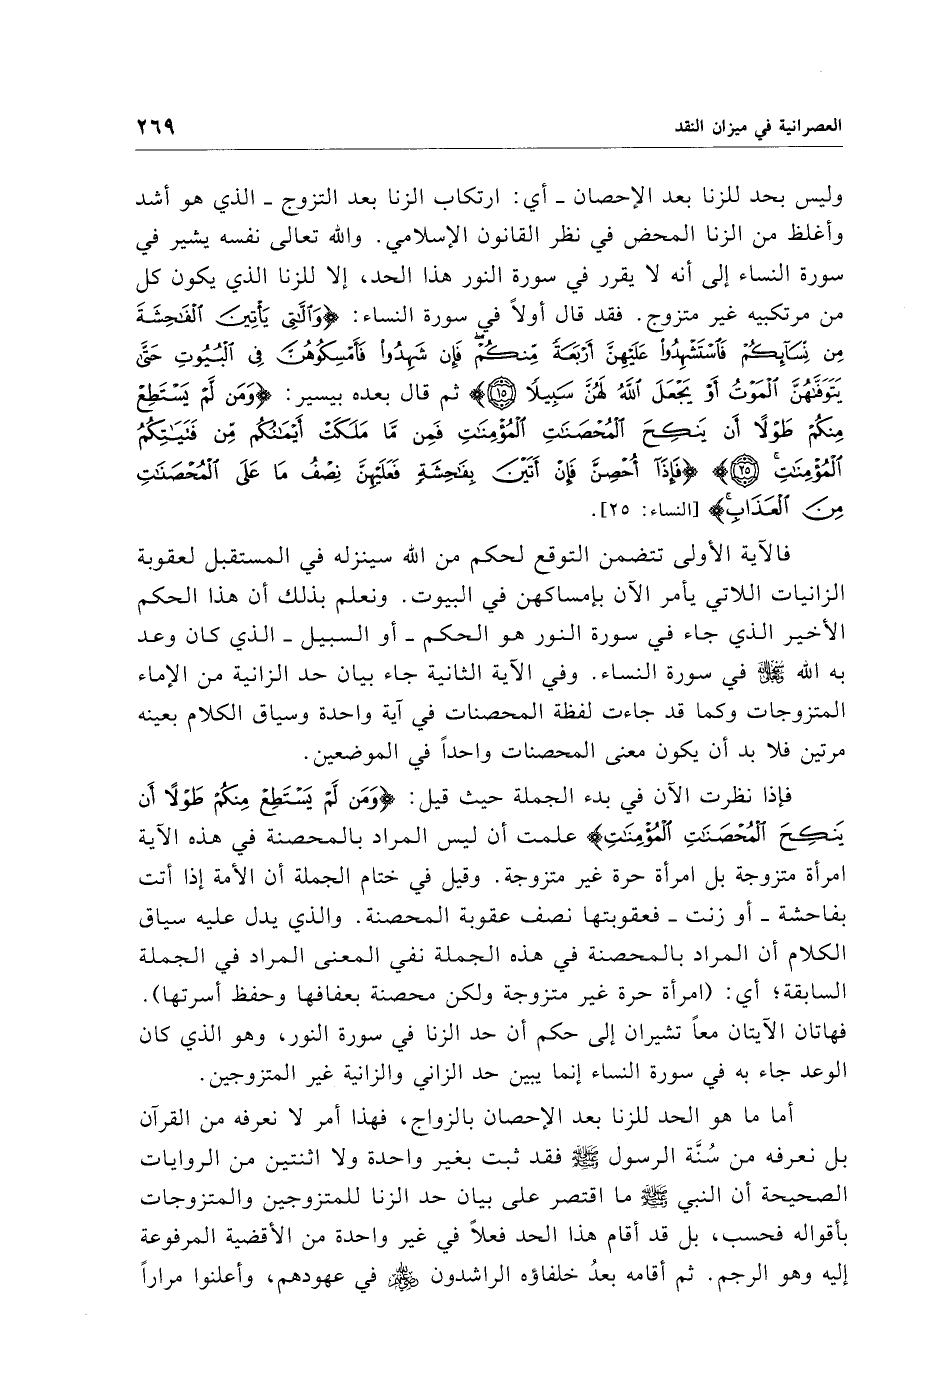 العصرانية في ميزان النقد ٢٦٩
وليس بحد للزنا بعد الإحصان ـ أي: ارتكاب الزنا بعد التزوج ـ الذي هو أشد
وأغلظ من الزنا المحض في نظر القانون الإسلامي. والله تعالى نفسه يشير في
سورة النساء إلى أنه لا يقرر في سورة النور هذا الحد، إلا للزنا الذي يكون كل
من مرتكبيه غير متزوج. فقد قال أولاً في سورة النساء: ﴿وَٱلَّٰتِى يَأْتِينَ ٱلْفَٰحِشَةَ
مِن نِّسَآئِكُمْ فَٱسْتَشْهِدُوا۟ عَلَيْهِنَّ أَرْبَعَةً مِّنكُمْ ۖ فَإِن شَهِدُوا۟ فَأَمْسِكُوهُنَّ فِى ٱلْبُيُوتِ حَتَّىٰ
يَتَوَفَّىٰهُنَّ ٱلْمَوْتُ أَوْ يَجْعَلَ ٱللَّهُ لَهُنَّ سَبِيلًا ١٥﴾ ثم قال بعده بيسير: ﴿وَمَن لَّمْ يَسْتَطِعْ
مِنكُمْ طَوْلًا أَن يَنكِحَ ٱلْمُحْصَنَٰتِ ٱلْمُؤْمِنَٰتِ فَمِن مَّا مَلَكَتْ أَيْمَٰنُكُم مِّن فَتَيَٰتِكُمُ
ٱلْمُؤْمِنَٰتِ ۚ ٢٥﴾ ﴿فَإِذَآ أُحْصِنَّ فَإِنْ أَتَيْنَ بِفَٰحِشَةٍ فَعَلَيْهِنَّ نِصْفُ مَا عَلَى ٱلْمُحْصَنَٰتِ
مِنَ ٱلْعَذَابِ ۚ﴾ [النساء: ٢٥].
فالآية الأولى تتضمن التوقع لحكم من الله سينزله في المستقبل لعقوبة
الزانيات اللاتي يأمر الآن بإمساكهن في البيوت. ونعلم بذلك أن هذا الحكم
الأخير الذي جاء في سورة النور هو الحكم ـ أو السبيل ـ الذي كان وعد
به الله ﷻ في سورة النساء. وفي الآية الثانية جاء بيان حد الزانية من الإماء
المتزوجات وكما قد جاءت لفظة المحصنات في آية واحدة وسياق الكلام بعينه
مرتين فلا بد أن يكون معنى المحصنات واحداً في الموضعين.
فإذا نظرت الآن في بدء الجملة حيث قيل: ﴿وَمَن لَّمْ يَسْتَطِعْ مِنكُمْ طَوْلًا أَن
يَنكِحَ ٱلْمُحْصَنَٰتِ ٱلْمُؤْمِنَٰتِ﴾ علمت أن ليس المراد بالمحصنة في هذه الآية
امرأة متزوجة بل امرأة حرة غير متزوجة. وقيل في ختام الجملة أن الأمة إذا أتت
بفاحشة ـ أو زنت ـ فعقوبتها نصف عقوبة المحصنة. والذي يدل عليه سياق
الكلام أن المراد بالمحصنة في هذه الجملة نفي المعنى المراد في الجملة
السابقة؛ أي: (امرأة حرة غير متزوجة ولكن محصنة بعفافها وحفظ أسرتها).
فهاتان الآيتان معاً تشيران إلى حكم أن حد الزنا في سورة النور، وهو الذي كان
الوعد جاء به في سورة النساء إنما يبين حد الزاني والزانية غير المتزوجين.
أما ما هو الحد للزنا بعد الإحصان بالزواج، فهذا أمر لا نعرفه من القرآن
بل نعرفه من سُنَّة الرسول ﷺ فقد ثبت بغير واحدة ولا اثنتين من الروايات
الصحيحة أن النبي ﷺ ما اقتصر على بيان حد الزنا للمتزوجين والمتزوجات
بأقواله فحسب، بل قد أقام هذا الحد فعلاً في غير واحدة من الأقضية المرفوعة
إليه وهو الرجم. ثم أقامه بعدُ خلفاؤه الراشدون ﷺ في عهودهم، وأعلنوا مراراً